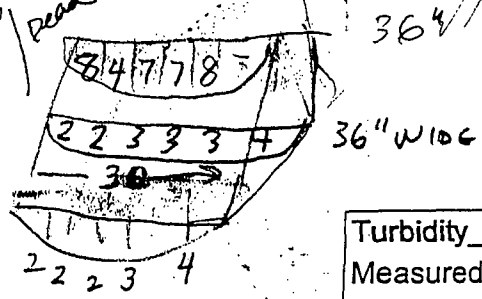 Dead
36"
8 4 7 7 8
2 2 3 3 3 4
36" WIDE
30
2 2 2 3 4
Turbidity_
Measured